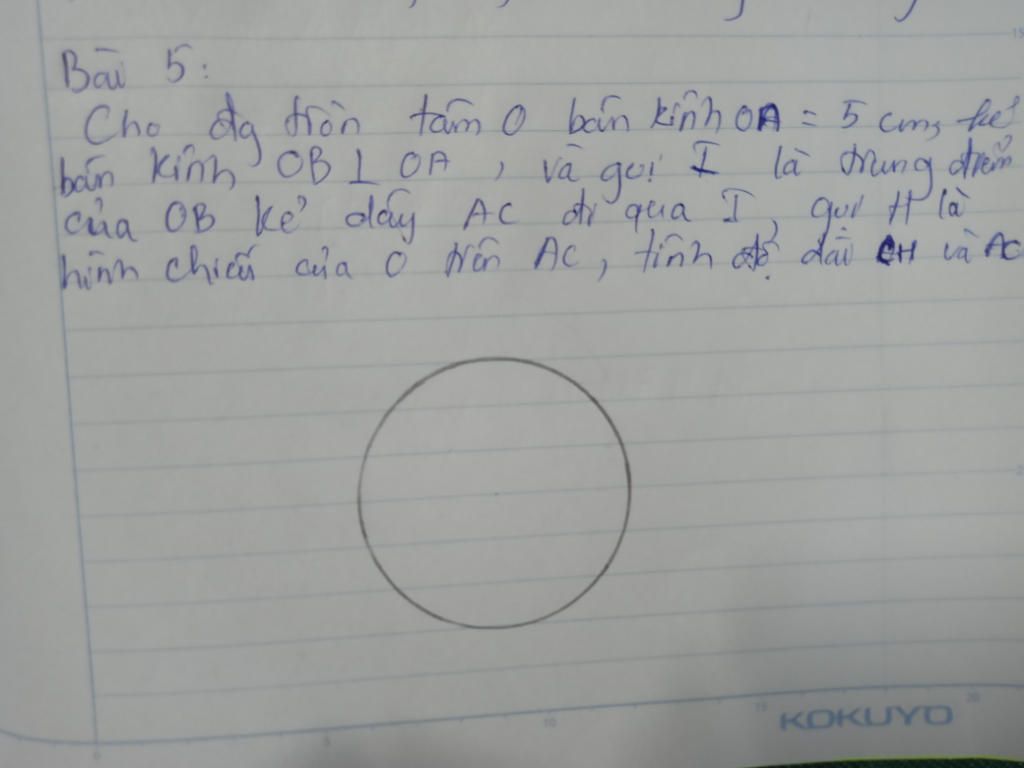 Bài 5:
Cho đg tròn tâm O bán kính OA = 5 cm, kẻ
bán kính OB ⊥ OA, và gọi I là trung điểm
của OB kẻ dây AC đi qua I, gọi H là
hình chiếu của O trên AC, tính độ dài CH và AC
15
20
10
5
0
KOKUYO